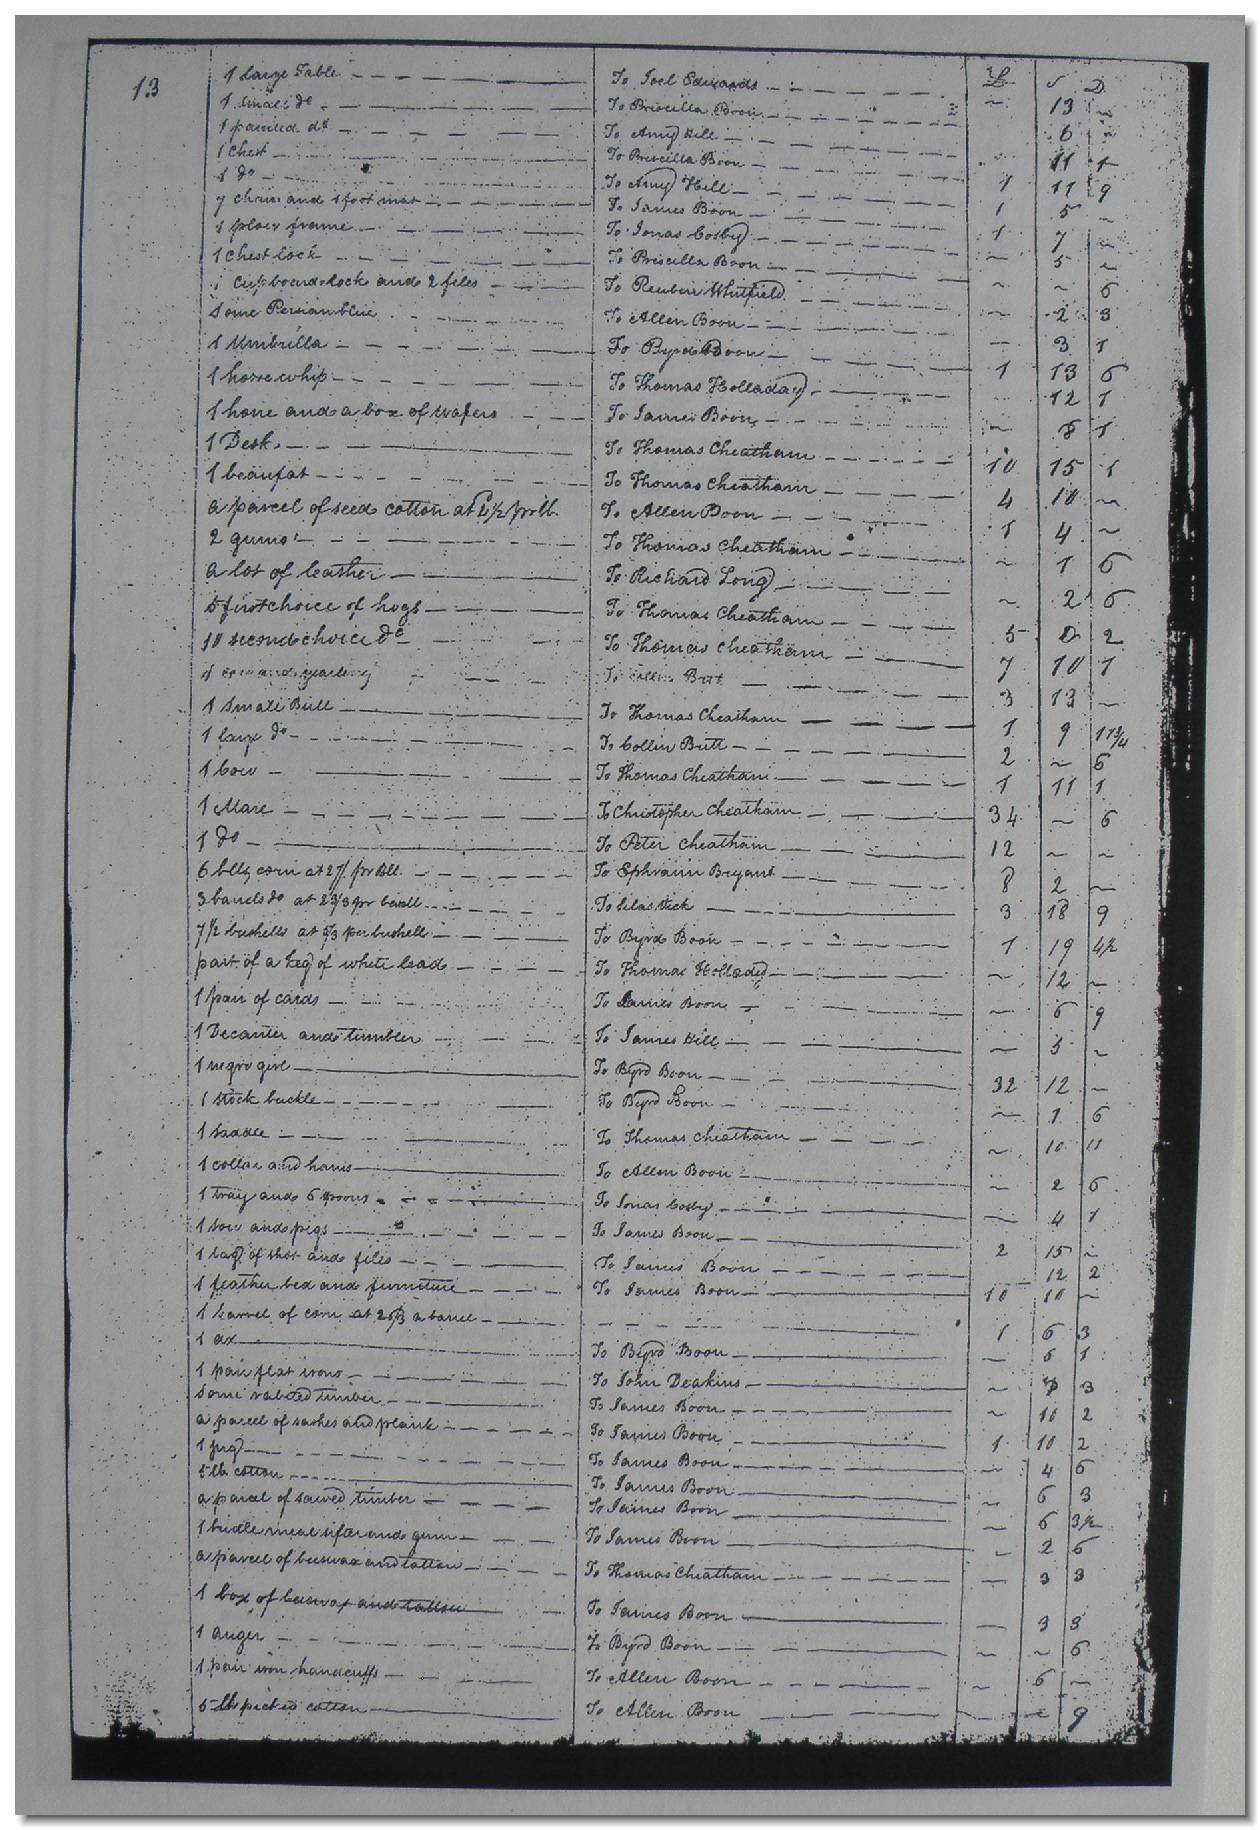 13 L S D
1 large Table To Joel Edwards ~ 13 ~
1 small do To Priscilla Boon 6 ~
1 painted do To Amy Hill 11 1
1 Chest To Priscilla Boon 1 11 9
1 do To Amy Hill 1 5 ~
7 chairs and 1 foot mat To James Boon 1 7 ~
1 plow frame To Jonas Cosby ~ 5 ~
1 chest lock To Priscilla Boon ~ ~ 6
1 cupboard lock and 2 files To Reuben Whitfield ~ 2 3
Some Persian blue To Allen Boon 3 1
1 Umbrilla To Byrd Boon 1 13 6
1 horse whip To Thomas Holladay 12 1
1 hone and a box of wafers To James Boon ~ 8 1
1 Desk To Thomas Cheatham 10 15 1
1 beaufat To Thomas Cheatham 4 10 ~
a parcel of seed cotton at 4½ pr lb To Allen Boon 1 4 ~
2 gums To Thomas Cheatham ~ 1 6
a lot of leather To Richard Long ~ 2 6
5 first choice of hogs To Thomas Cheatham 5 0 2
10 second choice do To Thomas Cheatham 7 10 1
1 cow and yearling To Collin Butt 3 13 ~
1 Small Bull To Thomas Cheatham 1 9 11¾
1 large do To Collin Butt 2 ~ 6
1 Cow To Thomas Cheatham 1 11 1
1 Mare To Christopher Cheatham 34 ~ 6
1 do To Peter Cheatham 12 ~ ~
6 blls corn at 27/ pr Bll. To Ephraim Bryant 8 2 ~
3 barrels do at 26/3 pr barell To Silas Vick 3 18 9
7½ bushells at 5/3 per bushell To Byrd Boon 1 19 4½
part of a keg of white lead To Thomas Holladay ~ 12 ~
1 pair of cards To James Boon ~ 6 9
1 Decanter and tumbler To James Hill ~ 5 ~
1 negro girl To Byrd Boon 32 12 ~
1 stock buckle To Byrd Boon ~ 1 6
1 saddle To Thomas Cheatham ~ 10 11
1 collar and hams To Allen Boon ~ 2 6
1 tray and 6 spoons To Jonas Cosby ~ 4 1
1 sow and pigs To James Boon 2 15 ~
1 bag of shot and files To James Boon 12 2
1 feather bed and furniture To James Boon 10 10 ~
1 barrel of corn at 26/3 a barrel 1 6 3
1 ax To Byrd Boon ~ 6 1
1 pair flat irons To John Deakins ~ 7 3
some rabeted timber To James Boon ~ 10 2
a parcel of sashes and plank To James Boon 1 10 2
1 jug To James Boon ~ 4 6
5 lb cotton To James Boon ~ 6 3
a parcel of sawed timber To James Boon ~ 6 3½
1 bridle meal sifter and gum To James Boon ~ 2 6
a parcel of beeswax and tallow To Thomas Cheatham ~ 3 3
1 box of beeswax and tallow To James Boon ~ 3 3
1 auger To Byrd Boon ~ ~ 6
1 pair iron handcuffs To Allen Boon ~ 6 ~
6 lb picked cotton To Allen Boon ~ ~ 9